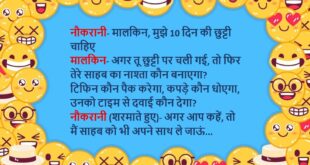 नौकरानी- मालकिन, मुझे 10 दिन की छुट्टी
चाहिए
मालकिन- अगर तू छुट्टी पर चली गई, तो फिर
तेरे साहब का नाश्ता कौन बनाएगा?
टिफिन कौन पैक करेगा, कपड़े कौन धोएगा,
उनको टाइम से दवाई कौन देगा?
नौकरानी (शरमाते हुए)- अगर आप कहें, तो
मैं साहब को भी अपने साथ ले जाऊं...